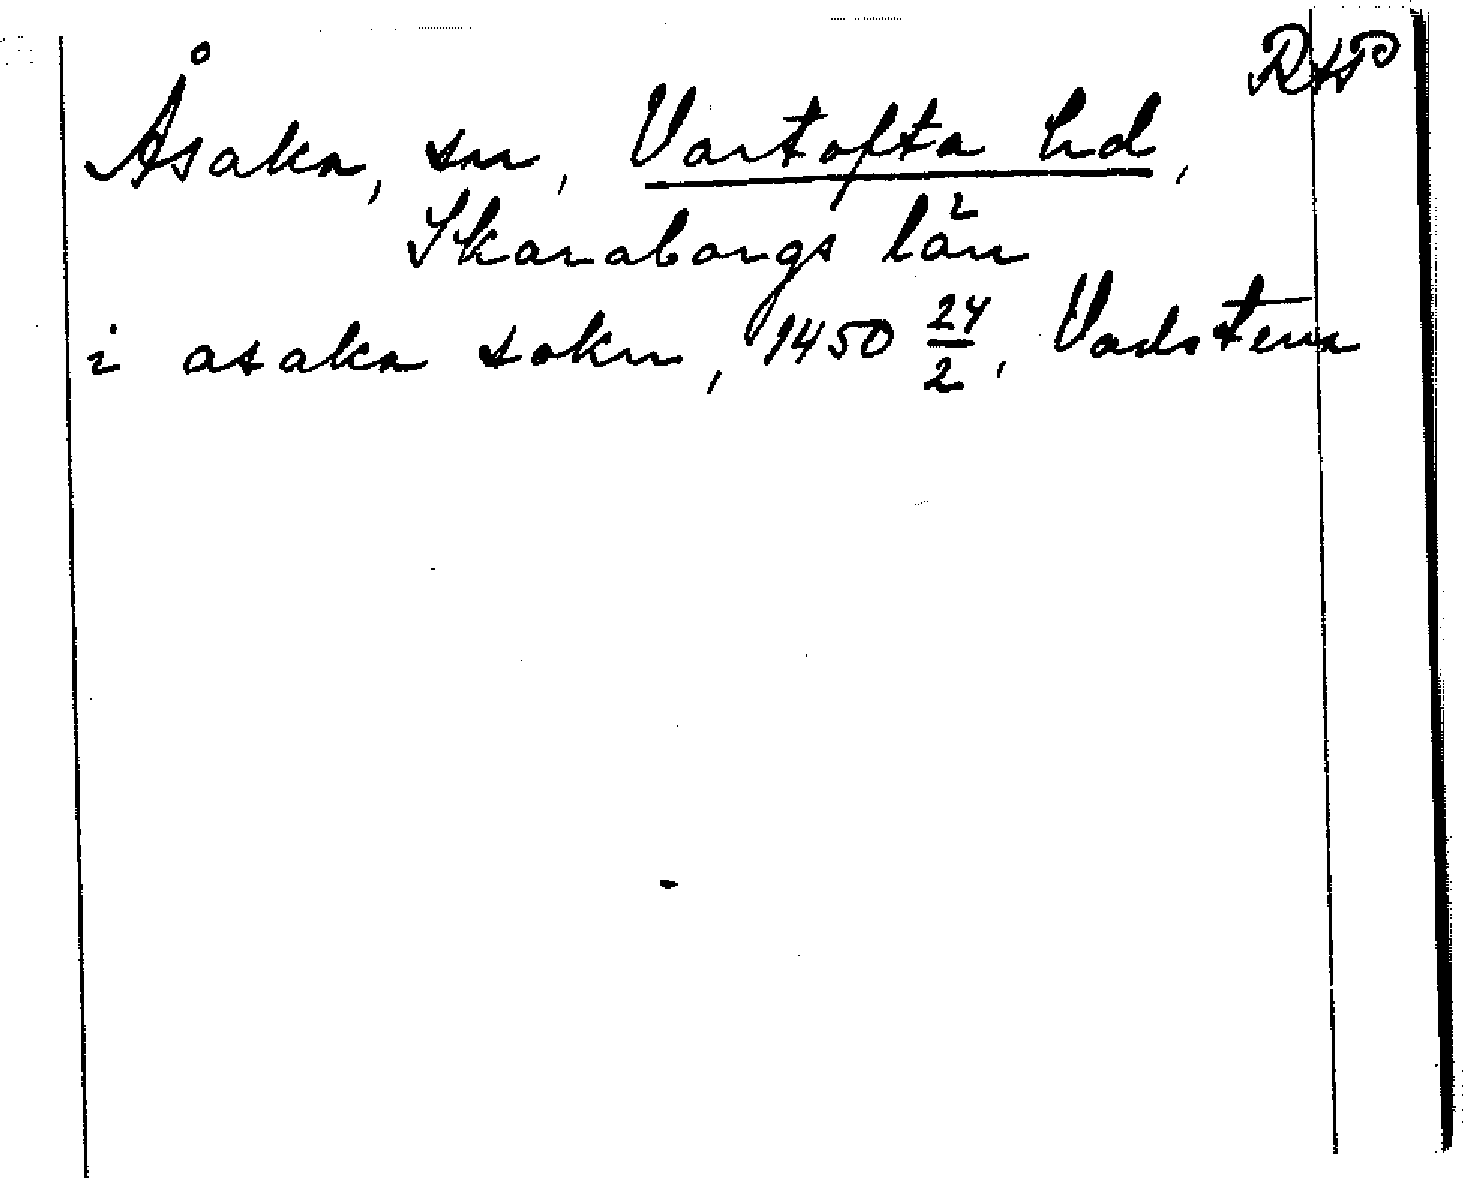 RAP
Åsaka, sn, Vartofta hd,
Skaraborgs län
i asaka sokn, 1450 24/2, Vadstena